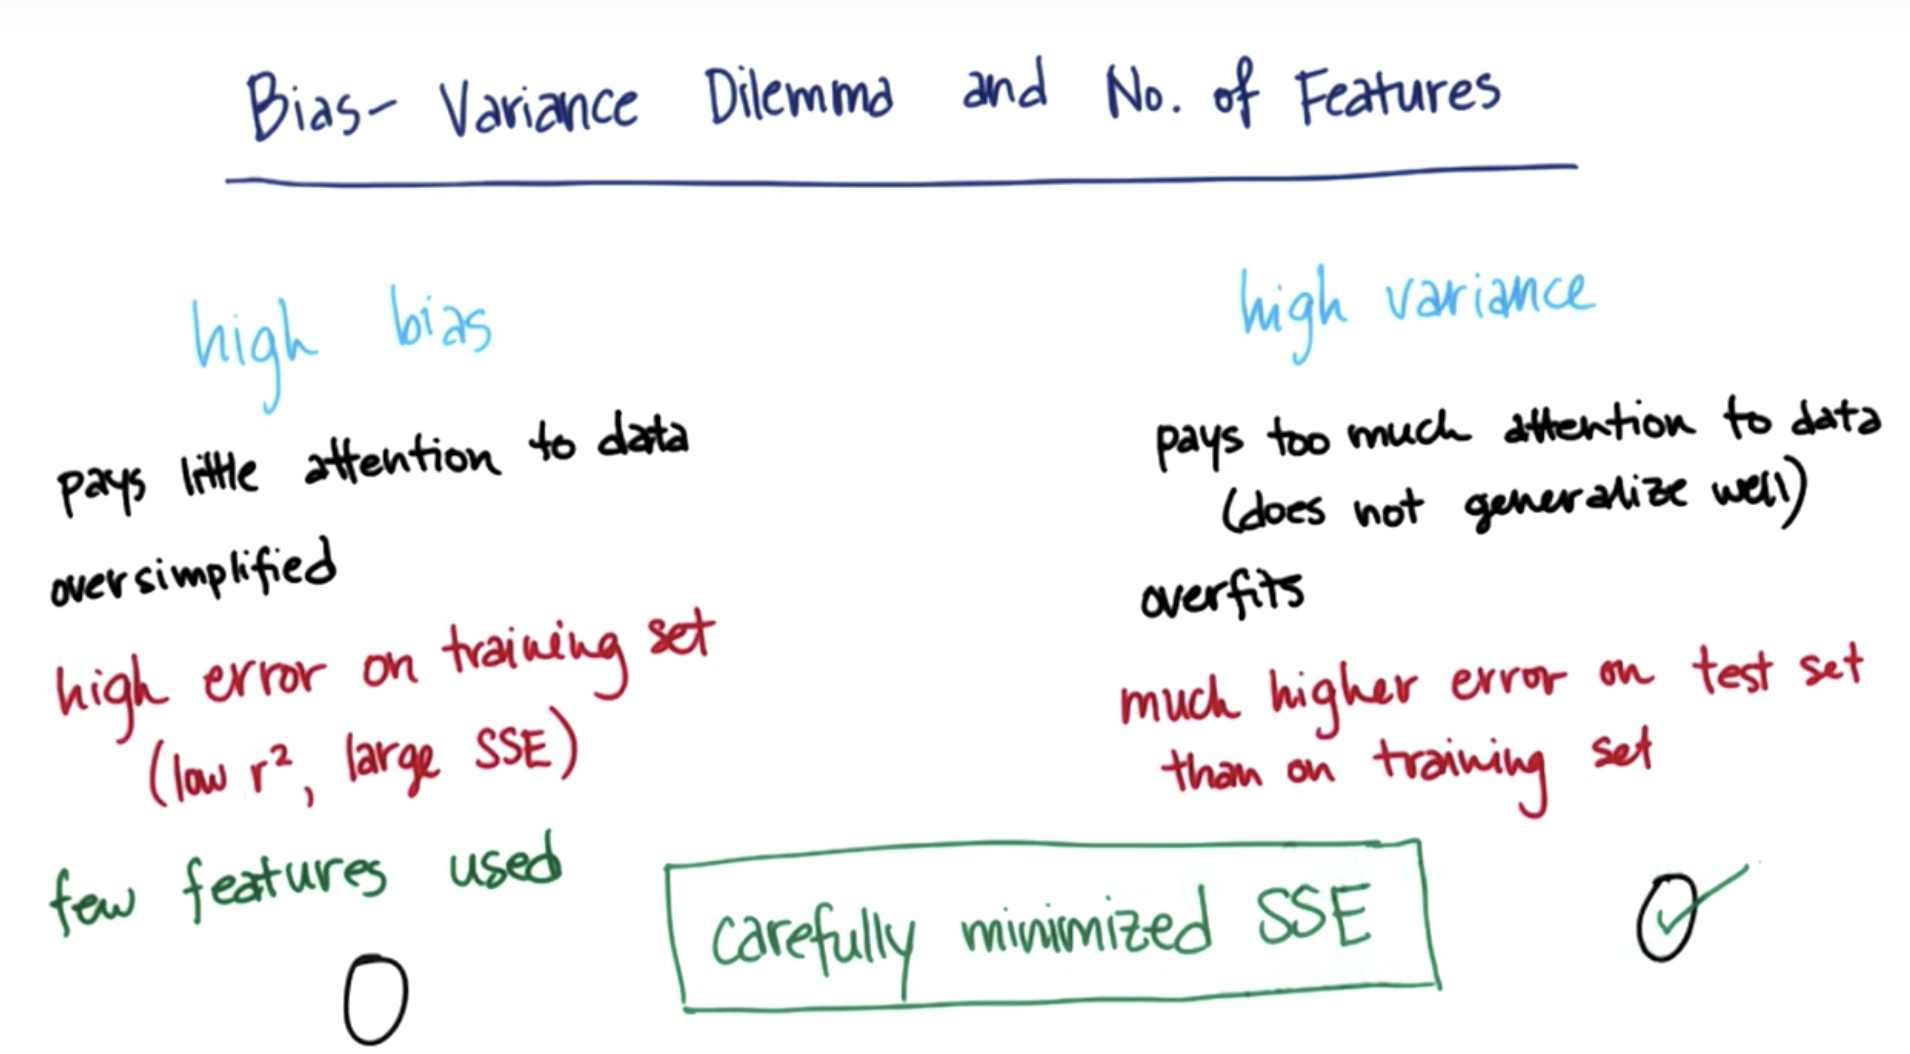 Bias- Variance Dilemma and No. of Features
high bias
pays little attention to data
oversimplified
high error on training set
(low r², large SSE)
few features used
high variance
pays too much attention to data
(does not generalize well)
overfits
much higher error on test set
than on training set
carefully minimized SSE